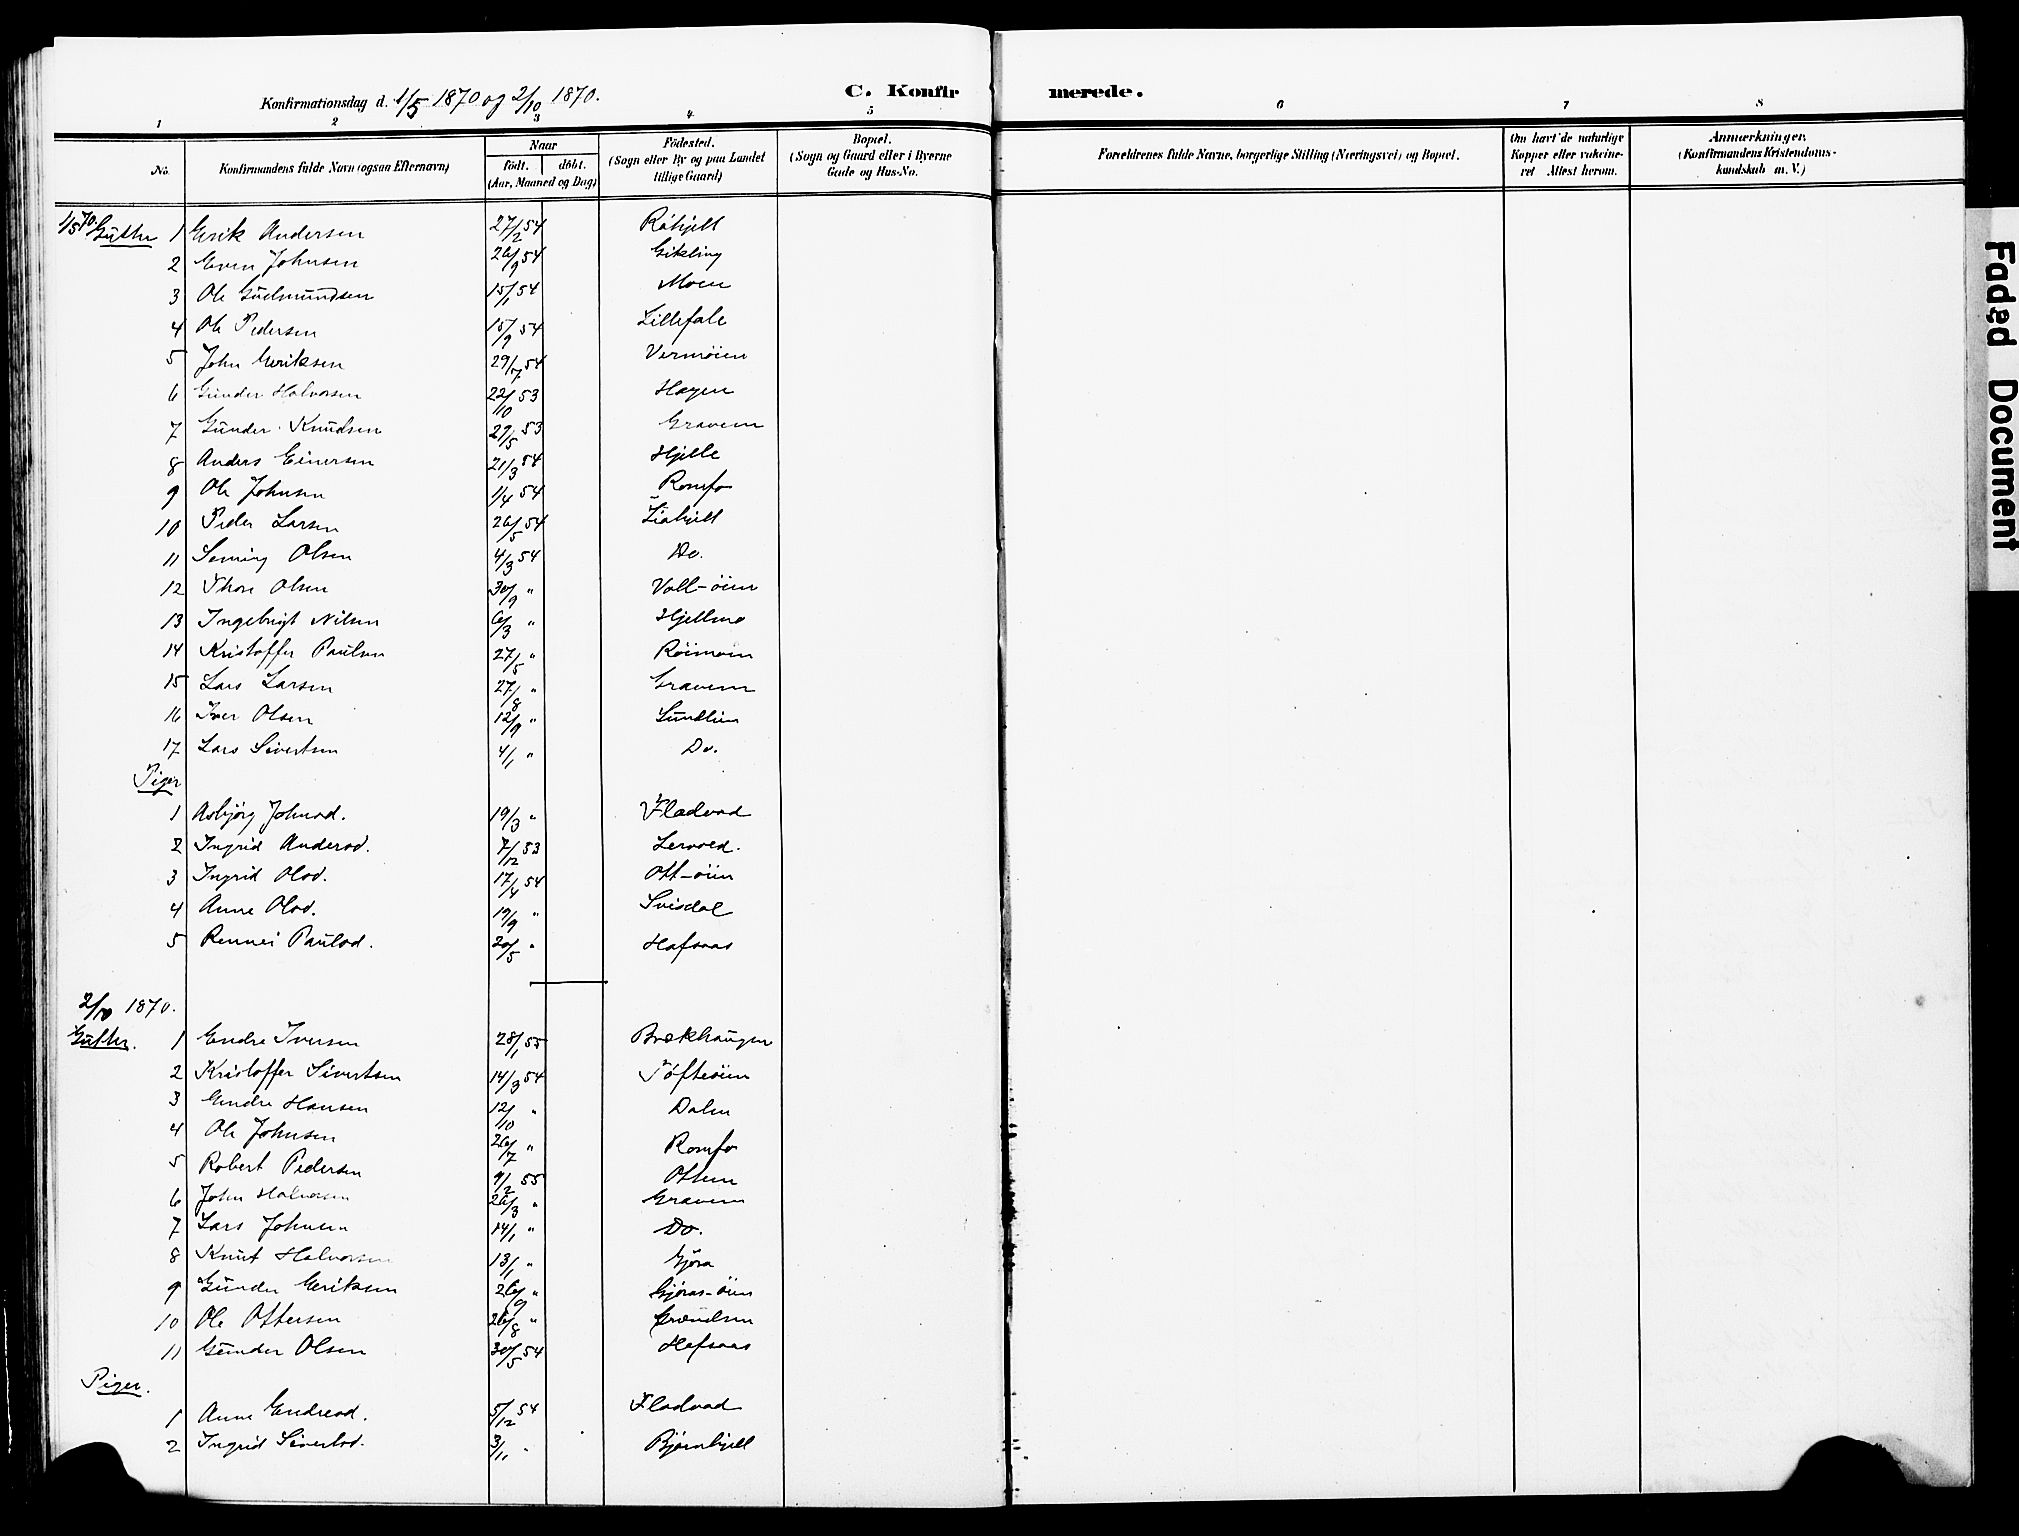 Konfirmationsdag d. 1/5 1870 og 2/10 1870.
C. Konfirmerede.
1 2 3 4 5 6 7 8
No. Konfirmandens fulde Navn (ogsaa Efternavn) Naar født. døbt. (Aar, Maaned og Dag) Fødested. (Sogn eller By og paa Landet tillige Gaard) Bopæl. (Sogn og Gaard eller i Byerne Gade og Hus-No. Forældrenes fulde Navne, borgerlige Stilling (Næringsvei) og Bopæl. Om havt de naturlige Kopper eller vakcineret Attest herom. Anmærkninger. (Konfirmandens Kristendomskundskab m. V.)
1/5 70. Gutter 1 Erik Andersen 27/2 54 Röhjell
2 Even Johnsen 26/9 54 Gikling
3 Ole Gudmundsen 15/1 54 Moen
4 Ole Pedersen 15/9 54 Lillefale
5 John Eriksen 29/7 54 Vermöien
6 Gunder Halvorsen 22/10 53 Hagen
7 Gunder Knudsen 29/5 53 Gravem
8 Anders Einersen 21/3 54 Hjelle
9 Ole Johnsen 1/4 54 Romfo
10 Peder Larsen 26/5 54 Liahjell
11 Seming Olsen 4/3 54 Do.
12 Thore Olsen 30/9 " Voll-öien
13 Ingebrigt Nilsen 6/3 " Hjellmo
14 Kristoffer Paulsen 27/5 " Röimoen
15 Lars Larsen 27/8 " Gravem
16 Iver Olsen 12/9 " Sundlien
17 Lars Sivertsen 4/1 " Do.
Piger
1 Asbjörg Johnsd. 19/3 " Fladvad
2 Ingrid Andersd. 7/12 53 Lervoed.
3 Ingrid Olsd. 17/4 54 Ott-öien
4 Anne Olsd. 19/9 " Svisdal
5 Rennei Paulsd. 20/5 " Hafsaas
2/10 1870.
Gutter. 1 Endre Iversen 28/1 55 Brækhaugen
2 Kristoffer Sivertsen 14/3 54 Töfteöien
3 Endre Hansen 12/10 " Dalen
4 Ole Johnsen 26/7 " Romfo
5 Robert Pedersen 9/2 55 Ottem
6 John Halvorsen 26/3 " Gravem
7 Lars Johnsen 14/1 " Do.
8 Knut Halvorsen 13/1 " Gjöra
9 Gunder Eriksen 26/9 " Gjöras-öien
10 Ole Ottersen 26/8 "
11 Gunder Olsen 30/5 54 Hafsaas
Piger.
1 Anne Endresd. 5/12 54 Fladvad
2 Ingrid Sivertsd. 3/11 " Björnhjell
Faded Document